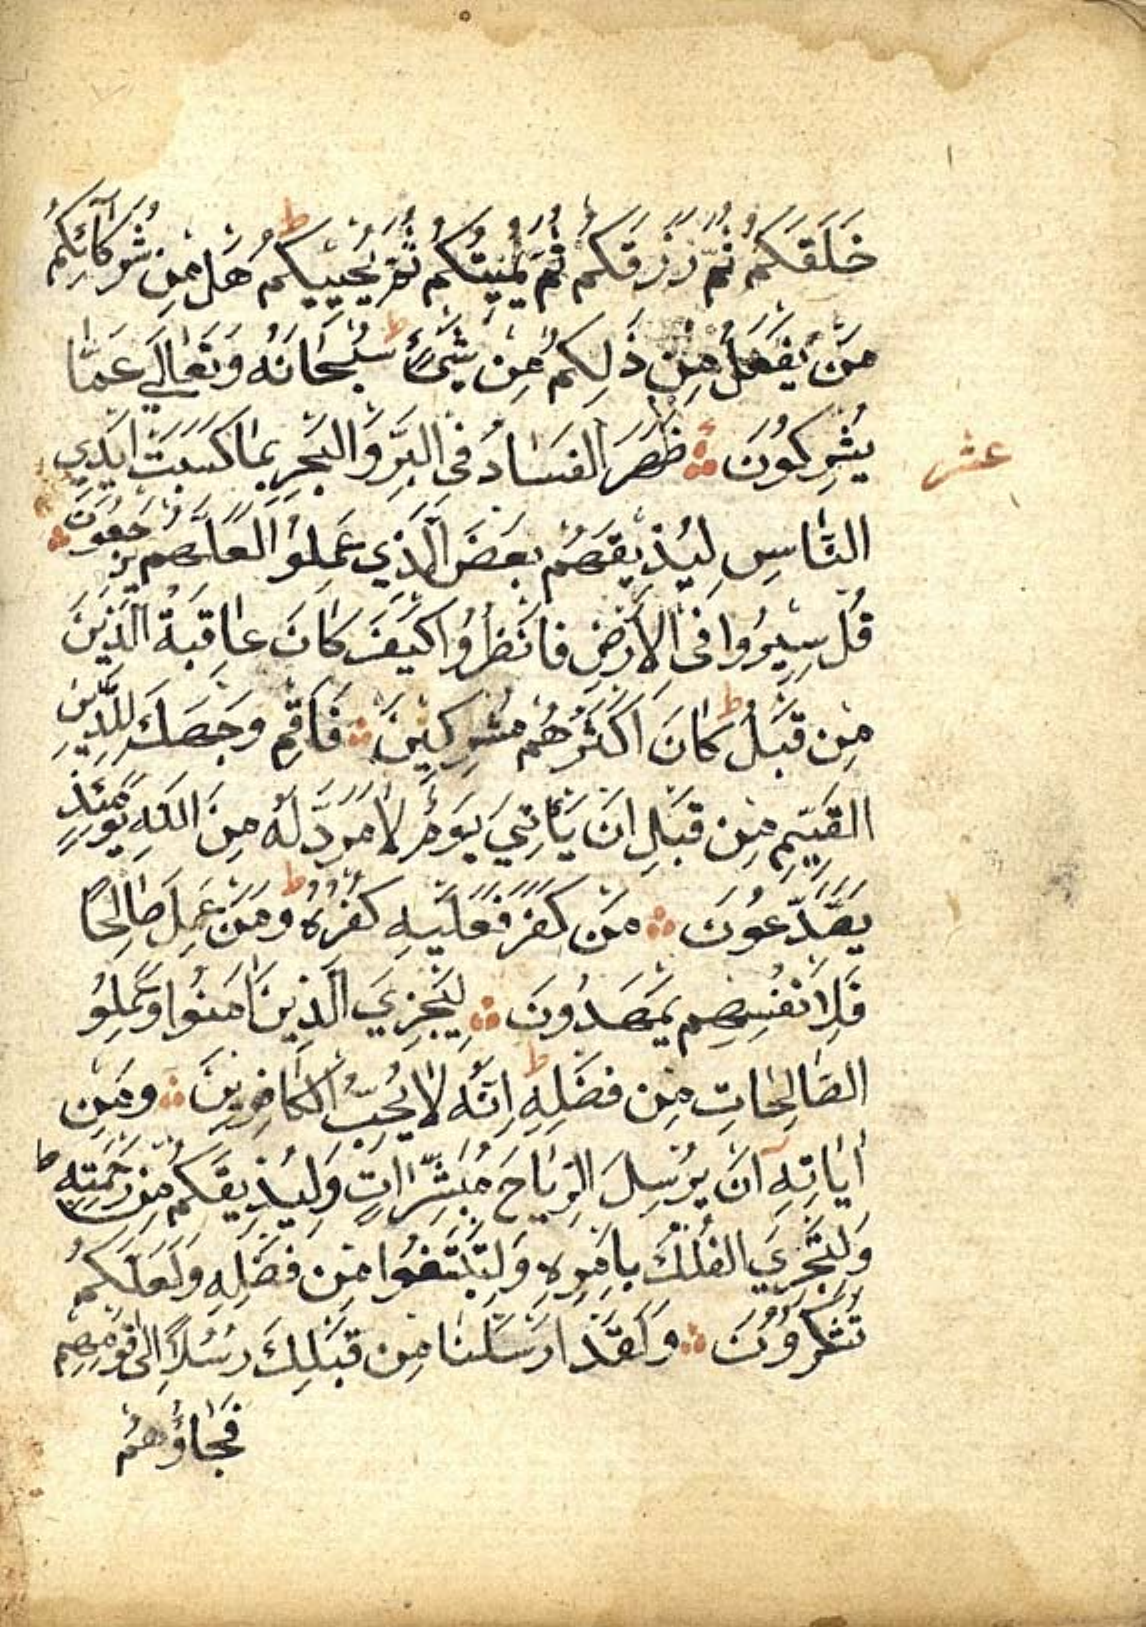 خَلَقَكُمْ ثُمَّ رَزَقَكُمْ ثُمَّ يُمِيتُكُمْ ثُمَّ يُحْيِيكُمْ ط هَلْ مِنْ شُرَكَآئِكُمْ
مَنْ يَفْعَلُ مِنْ ذَلِكُمْ مِنْ شَىْءٍ ط سُبْحَانَهُ وَتَعَالَى عَمَّا
يُشْرِكُونَ ظَهَرَ الْفَسَادُ فِى الْبَرِّ وَالْبَحْرِ بِمَا كَسَبَتْ اَيْدِي
عشر
النَّاسِ لِيُذِيقَهُمْ بَعْضَ الَّذِي عَمِلُوا لَعَلَّهُمْ يَرْجِعُونَ
قُلْ سِيرُوا فِى الْاَرْضِ فَانْظُرُوا كَيْفَ كَانَ عَاقِبَةُ الَّذِينَ
مِنْ قَبْلُ ط كَانَ اَكْثَرُهُمْ مُشْرِكِينَ فَاَقِمْ وَجْهَكَ لِلدِّينِ
الْقَيِّمِ مِنْ قَبْلِ اَنْ يَأْتِيَ يَوْمٌ لَا مَرَدَّ لَهُ مِنَ اللهِ يَوْمَئِذٍ
يَصَّدَّعُونَ مَنْ كَفَرَ فَعَلَيْهِ كُفْرُهُ ط وَمَنْ عَمِلَ صَالِحًا
فَلِاَنْفُسِهِمْ يَمْهَدُونَ لِيَجْزِيَ الَّذِينَ اٰمَنُوا وَعَمِلُوا
الصَّالِحَاتِ مِنْ فَضْلِهِ ط اِنَّهُ لَا يُحِبُّ الْكَافِرِينَ وَمِنْ
اٰيَاتِهِ اَنْ يُرْسِلَ الرِّيَاحَ مُبَشِّرَاتٍ وَلِيُذِيقَكُمْ مِنْ رَحْمَتِهِ ط
وَلِتَجْرِيَ الْفُلْكُ بِاَمْرِهِ وَلِتَبْتَغُوا مِنْ فَضْلِهِ وَلَعَلَّكُمْ
تَشْكُرُونَ وَلَقَدْ اَرْسَلْنَا مِنْ قَبْلِكَ رُسُلًا اِلَى قَوْمِهِمْ
فَجَاؤُهُمْ